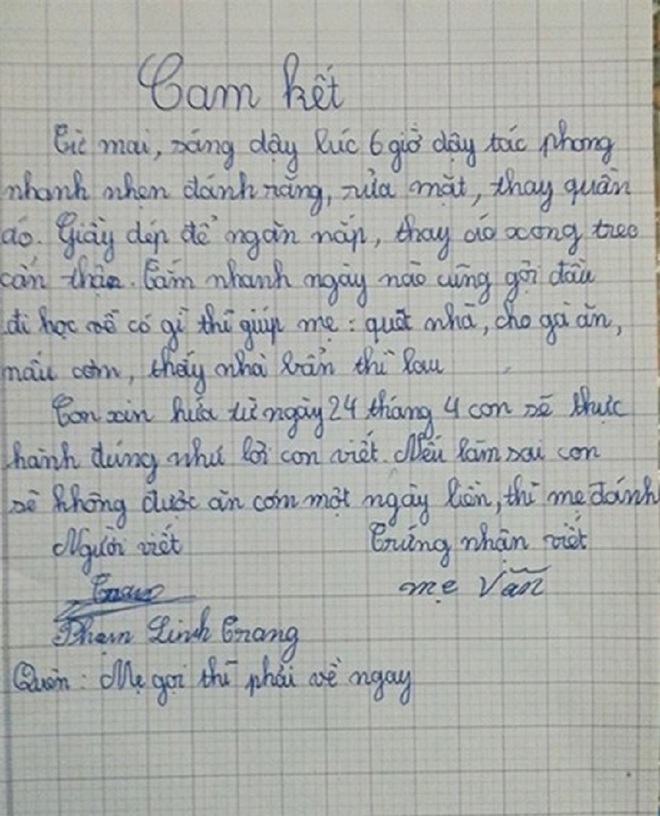 Cam kết
Từ mai, sáng dậy lúc 6 giờ dậy tác phong
nhanh nhẹn đánh răng, rửa mặt, thay quần
áo. Giày dép để ngăn nắp, thay áo xong treo
cẩn thận. Tắm nhanh ngày nào cũng gội đầu
đi học về có gì thì giúp mẹ: quét nhà, cho gà ăn,
nấu cơm, thấy nhà bẩn thì lau
Con xin hứa từ ngày 24 tháng 4 con sẽ thực
hành đúng như lời con viết. Nếu làm sai con
sẽ không được ăn cơm một ngày liền, thì mẹ đánh
Người viết Trứng nhận viết
Trang mẹ Vân
Phạm Linh Trang
Quên: Mẹ gọi thì phải về ngay